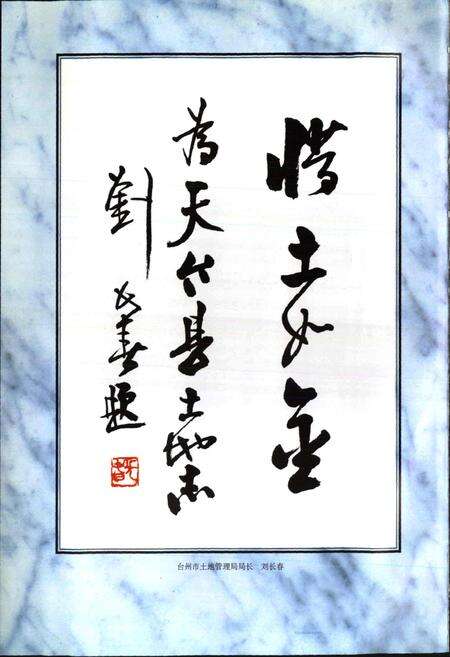 惜土如金
为天台县土地志
劉长春题
台州市土地管理局局长 刘长春